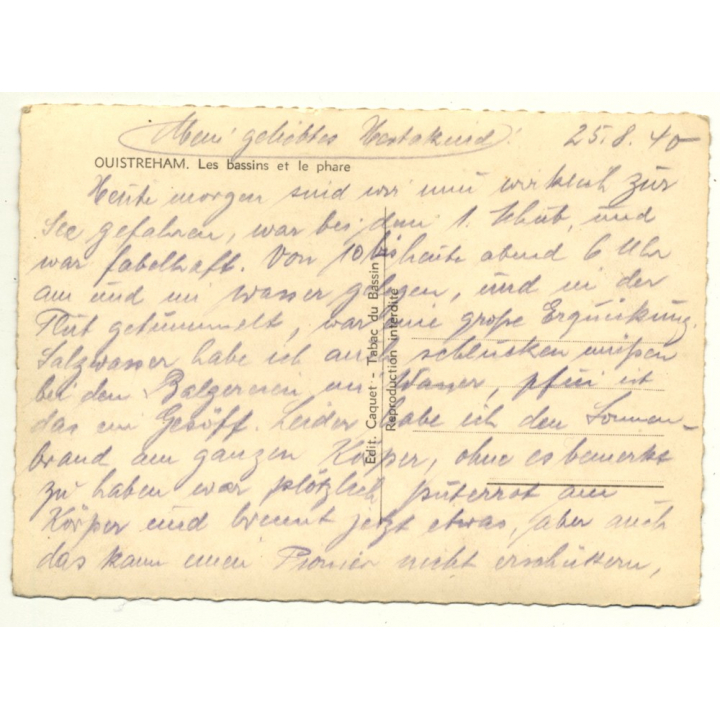 Mein geliebtes Herzkind! 25.8.40
OUISTREHAM. Les bassins et le phare
Heute morgen sind wir nun wirklich zur
See gefahren, war bei dem 1. Schub, und
war fabelhaft. Von 10 bis heute abend 6 Uhr
am und im wasser gelegen, und in der
Flut getummelt, war eine große Erquickung.
Salzwasser habe ich auch schlucken müßen
bei den Balgereien im Wasser, pfui ist
das ein Gesöff. Leider habe ich den Sonnen-
brand am ganzen Körper, ohne es bemerkt
zu haben war plötzlich puterrot am
Körper und brennt jetzt etwas, aber auch
das kann einen Pionier nicht erschüttern,
Edit. Caquet - Tabac du Bassin
Reproduction interdite